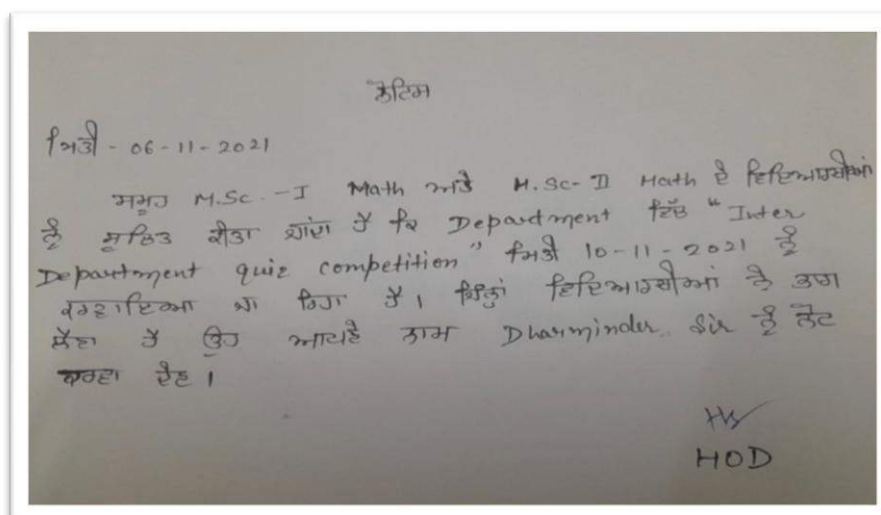 ਨੋਟਿਸ
ਮਿਤੀ - 06-11-2021
ਸਮੂਹ M.Sc.-I Math ਅਤੇ M.Sc-II Math ਦੇ ਵਿਦਿਆਰਥੀਆਂ
ਨੂੰ ਸੂਚਿਤ ਕੀਤਾ ਜਾਂਦਾ ਹੈ ਕਿ Department ਵਿੱਚ "Inter
Department quiz competition" ਮਿਤੀ 10-11-2021 ਨੂੰ
ਕਰਵਾਇਆ ਜਾ ਰਿਹਾ ਹੈ। ਜਿਨ੍ਹਾਂ ਵਿਦਿਆਰਥੀਆਂ ਨੇ ਭਾਗ
ਲੈਣਾ ਹੈ ਉਹ ਆਪਣੇ ਨਾਮ Dharminder Sir ਨੂੰ ਨੋਟ
ਕਰਵਾ ਦੇਣ।
HOD